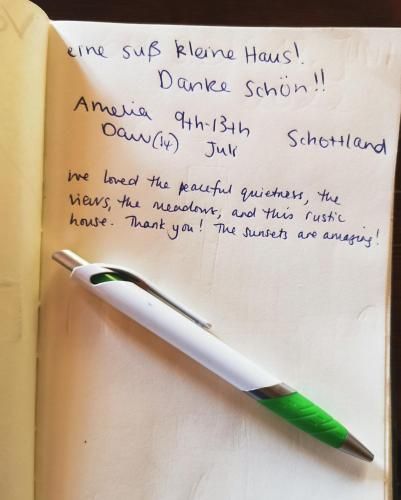 eine suß kleine Haus!.
Danke schön!!
Amelia 9th-13th Schottland
(14) Juli
we loved the peaceful quietness, the
views, the meadows, and this rustic
house. Thank you! The sunsets are amazing!